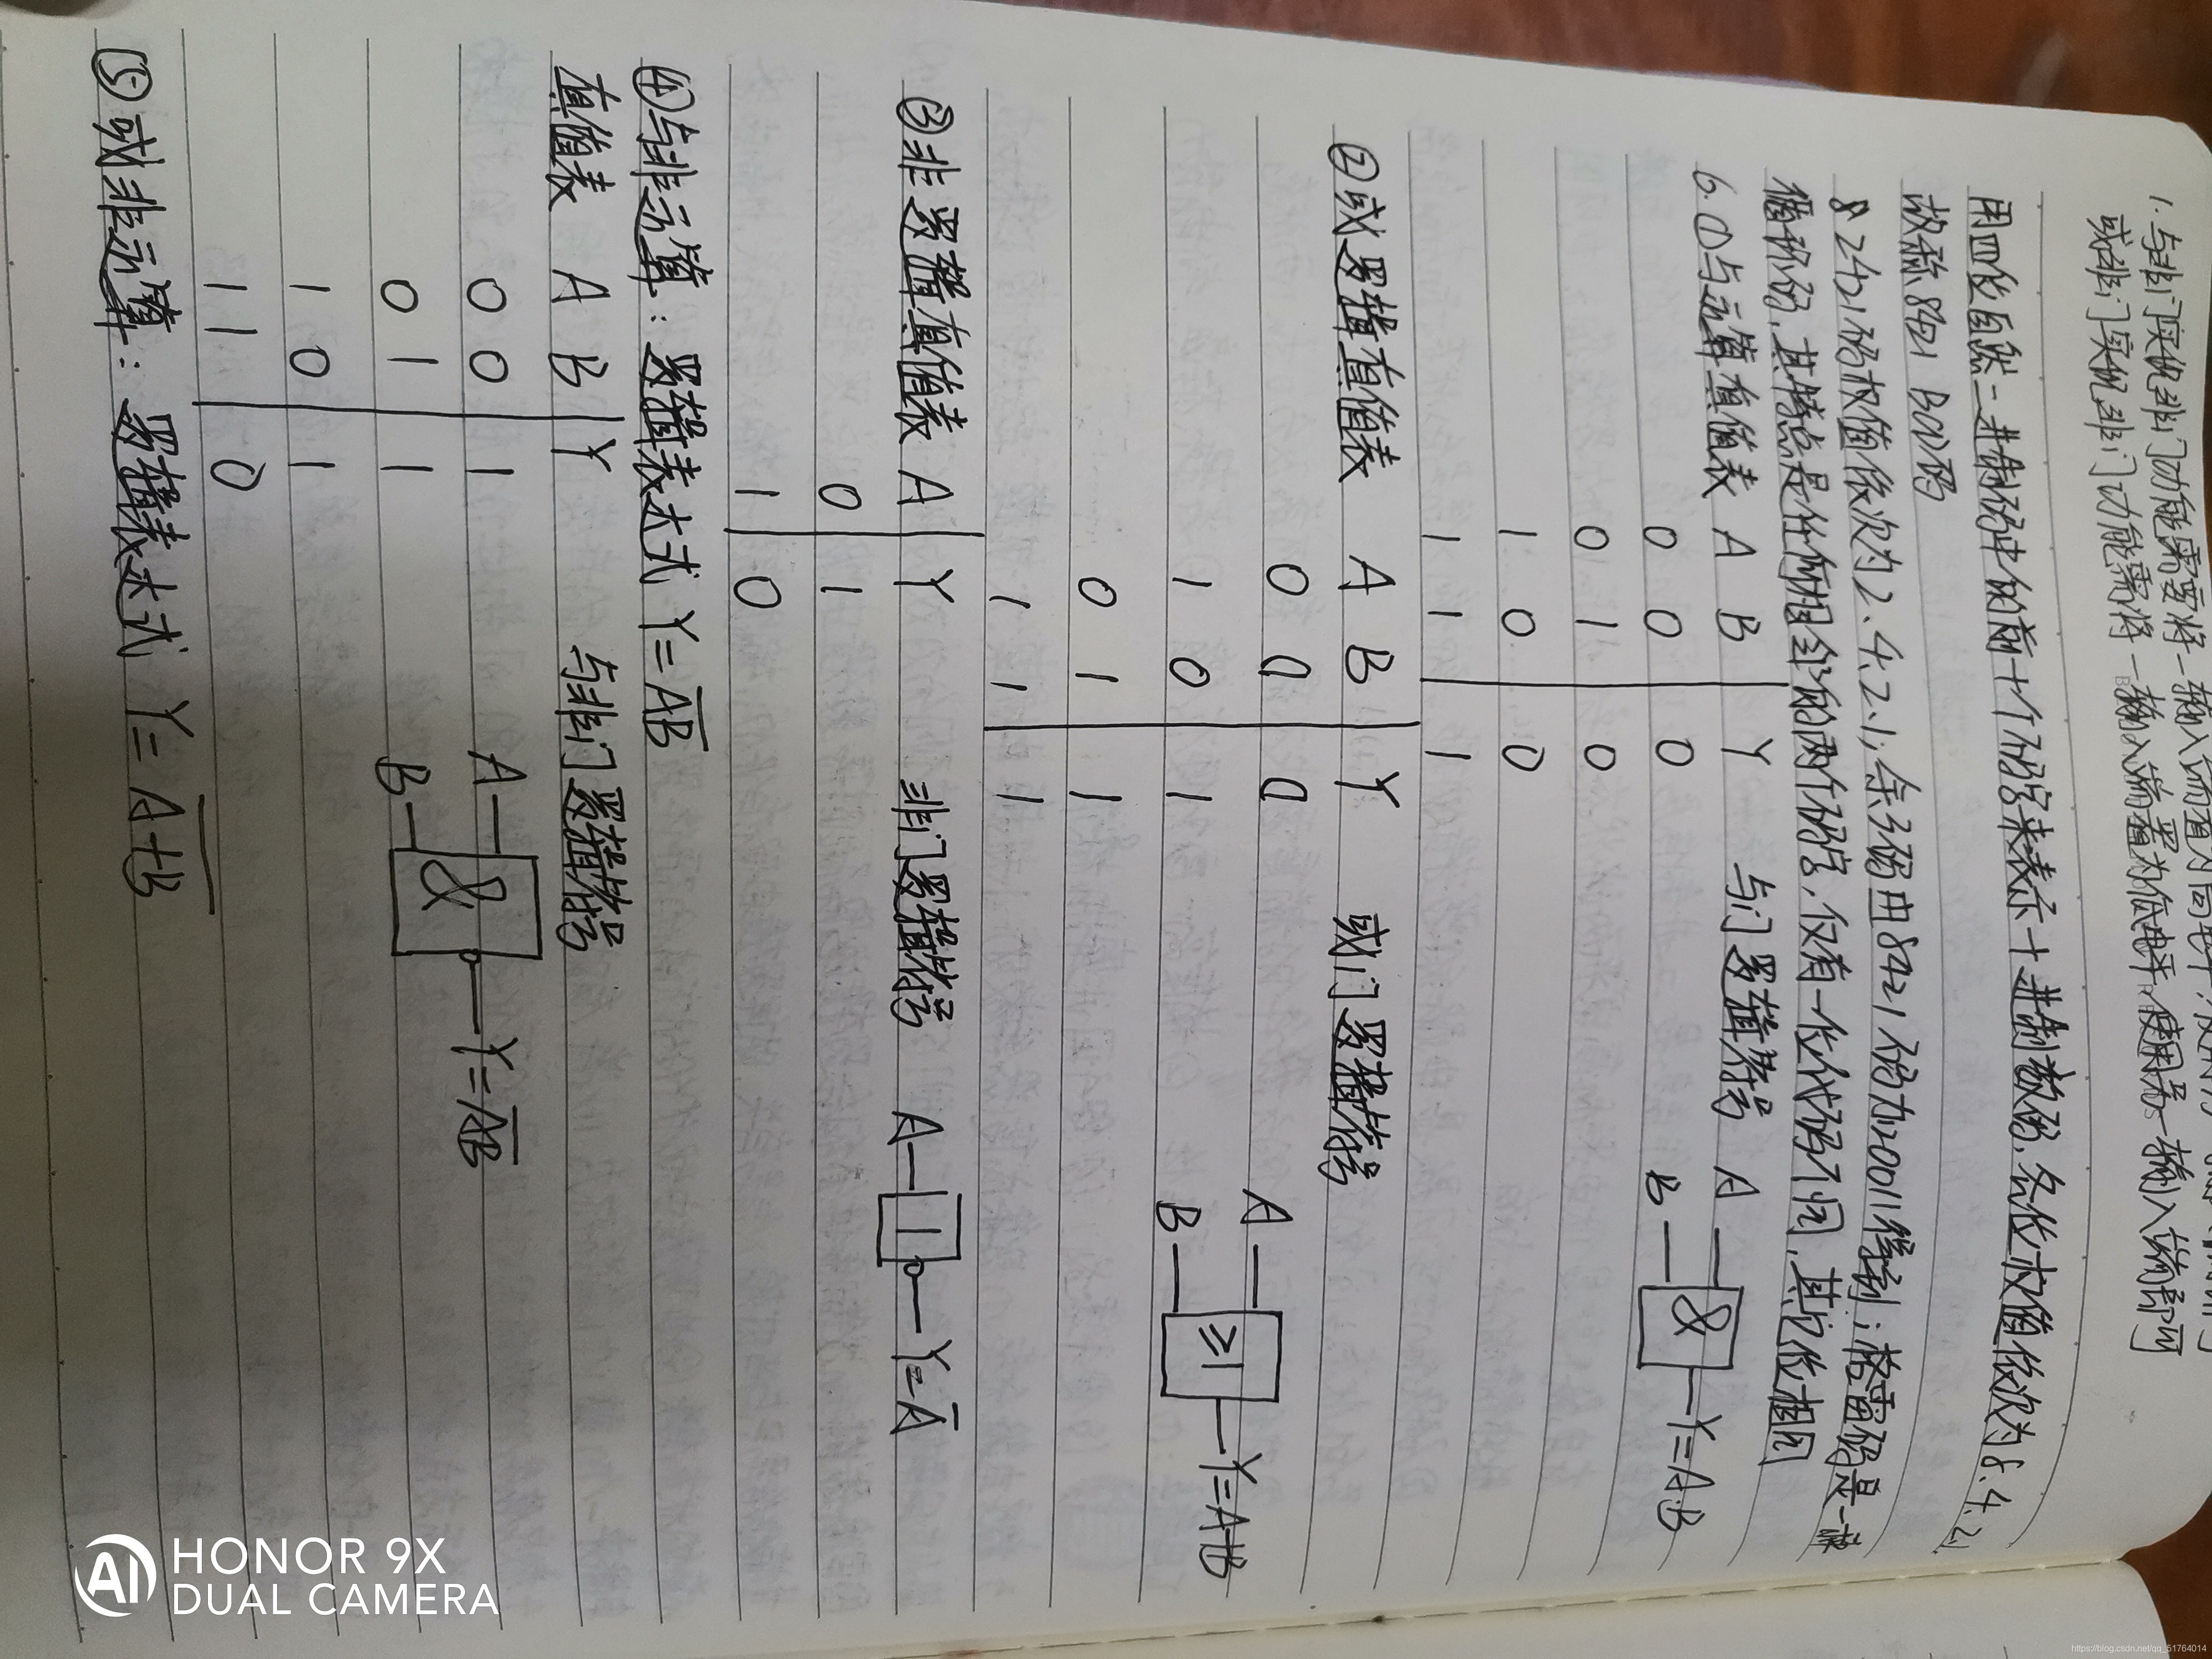 1.与非门实现非门功能需要将一输入端置为高电平,
或非门实现非门功能需将一输入端置为低电平,使用另一输入端即可
用四位自然二进制码中的前十个码字来表示十进制数码,各位权值依次为8.4.2.1
故称8421 BCD码
& 2421码权值依次为2.4.2.1;余3码由8421码加0011得到;格雷码是一种
循环码,其特点是任何相邻的两个码字,仅有一位代码不同,其它位相同
6.①与运算真值表 A B Y 与门逻辑符号 A
0 0 0 B & Y=A·B
0 1 0
1 0 0
1 1 1
②或逻辑真值表 A B Y 或门逻辑符号
0 0 0 A
1 0 1 B ≥1 Y=A+B
0 1 1
1 1 1
③非逻辑真值表 A Y 非门逻辑符号 A 1 Y=A̅
0 1
1 0
④与非运算:逻辑表达式 Y=A̅B̅
真值表 A B Y 与非门逻辑符号
0 0 1 A
0 1 1 B & Y=A̅B̅
1 0 1
1 1 0
⑤或非运算:逻辑表达式 Y=A̅+̅B̅
HONOR 9X
DUAL CAMERA
AI
https://blog.csdn.net/qq_51764014